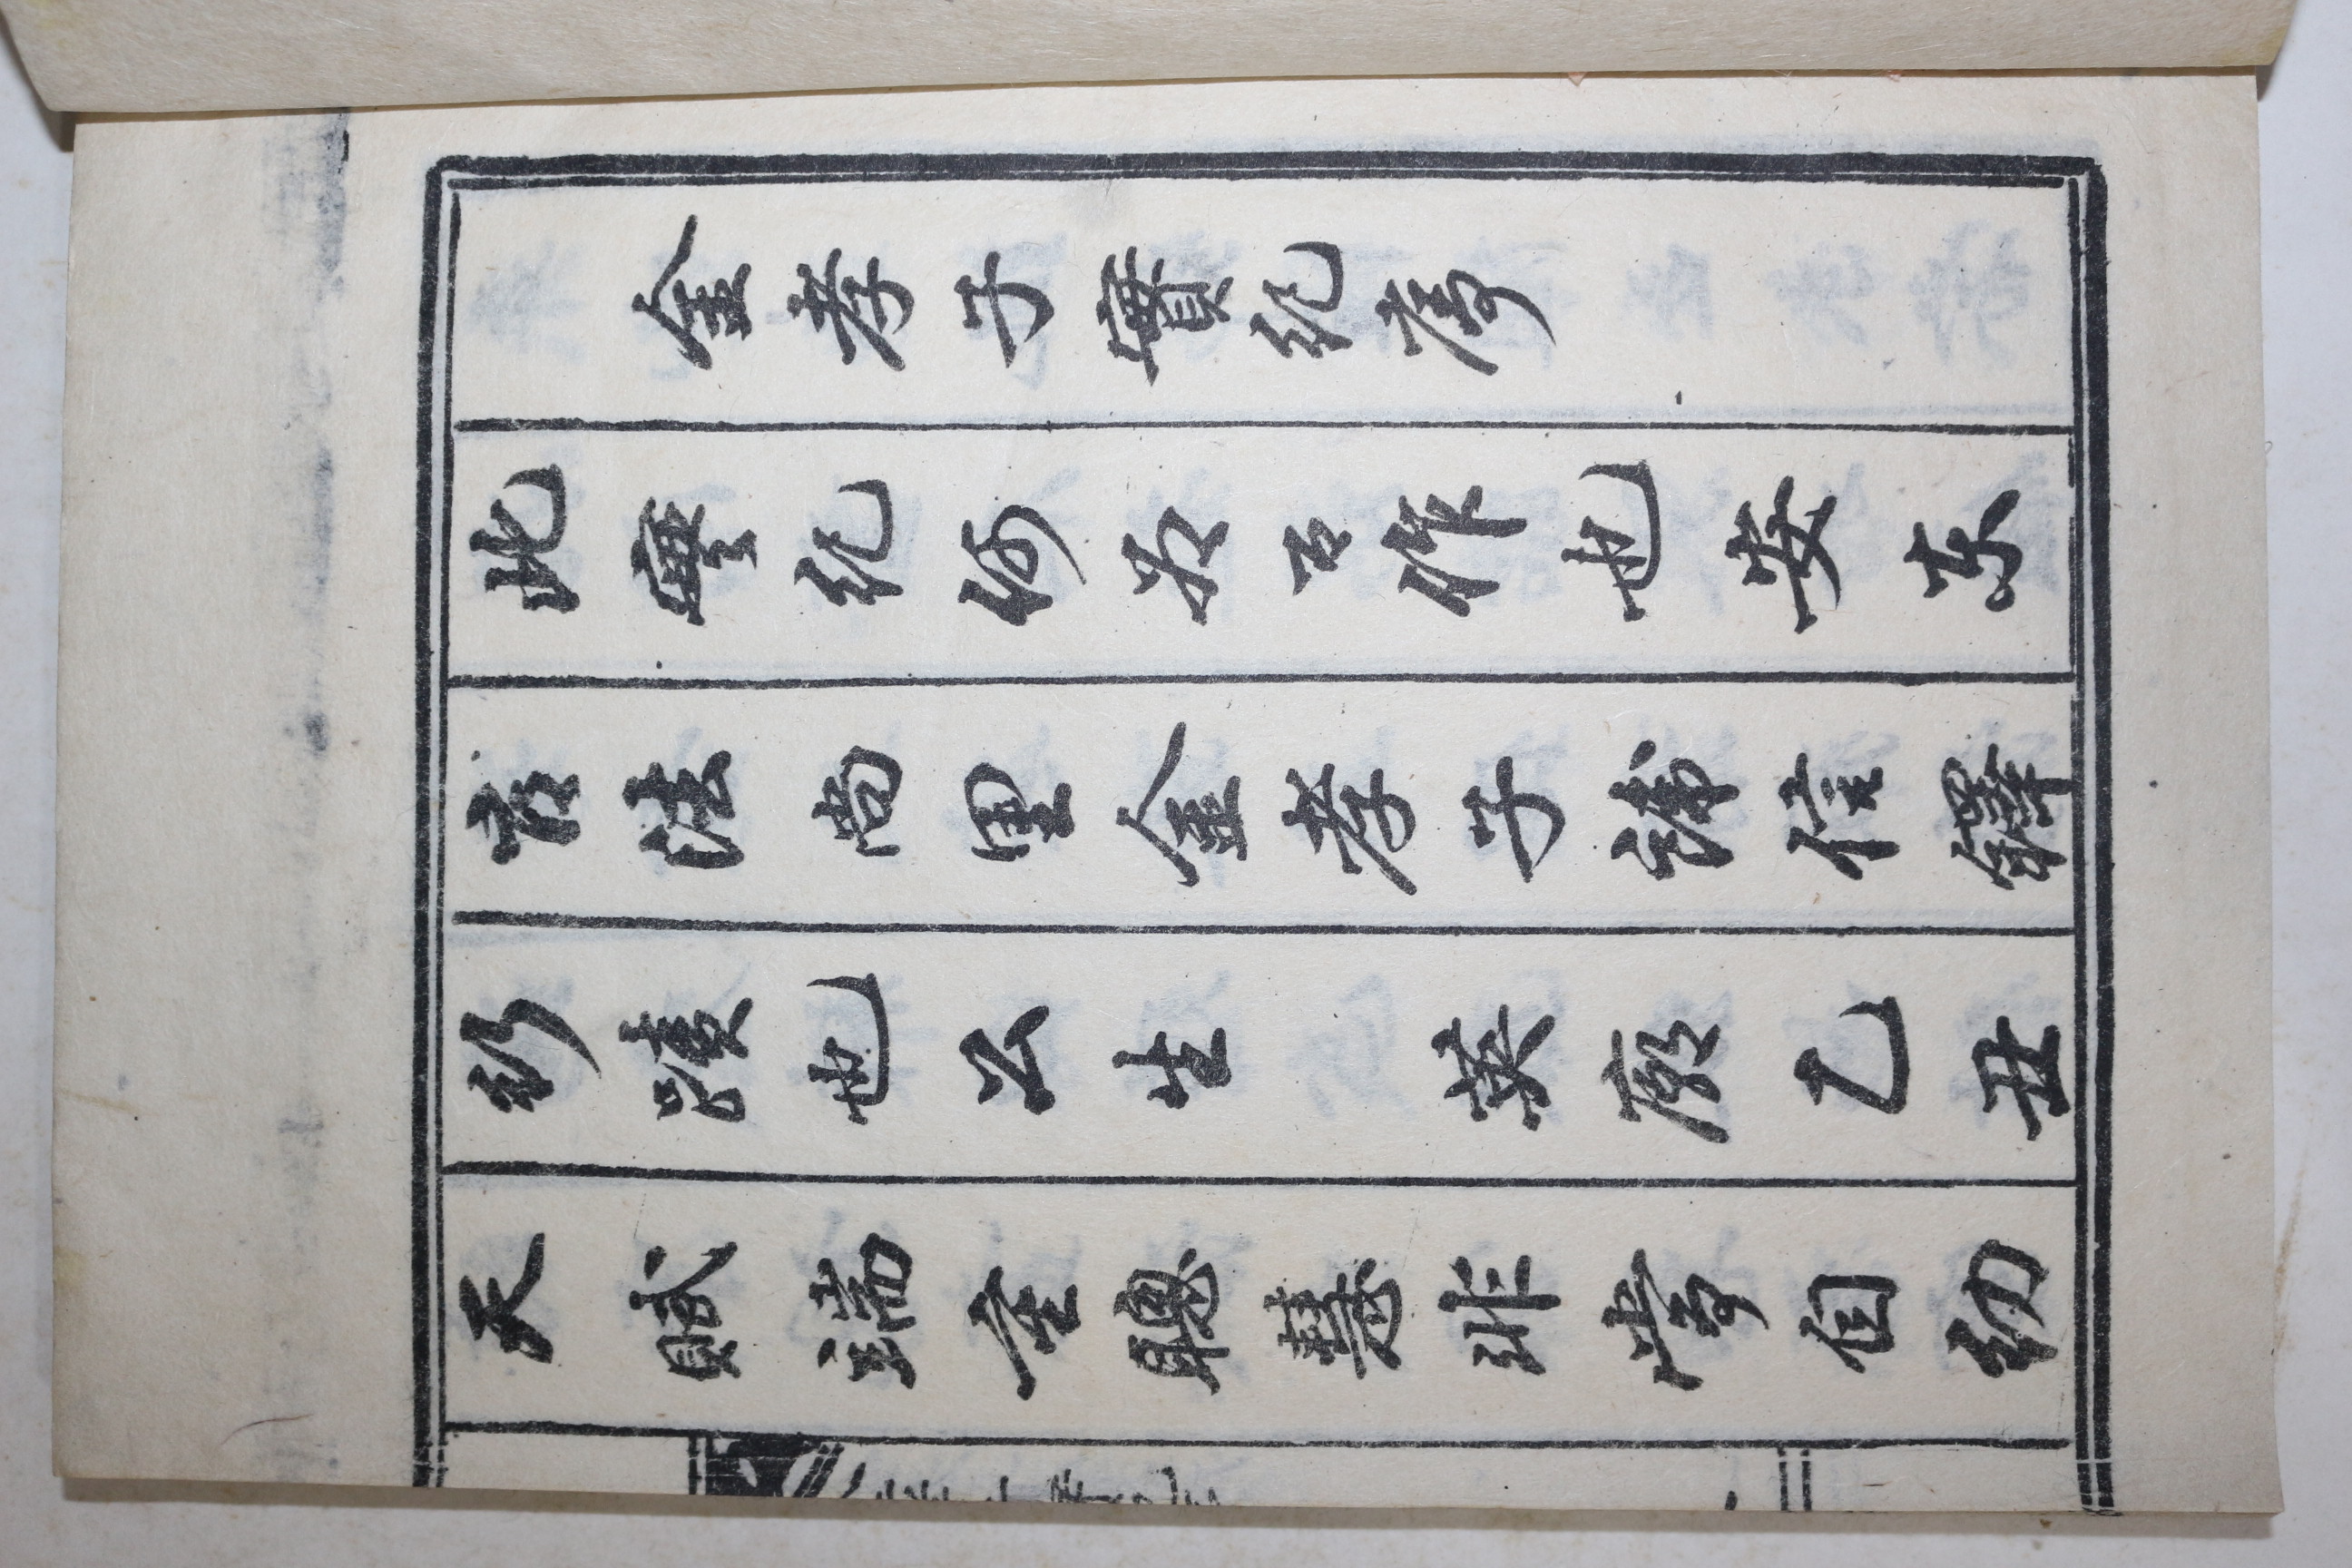 金孝子實紀序
此實紀何爲而作也安東
法尚里金孝子諱信鐸
行蹟也公生 英廟乙丑
天賦端重聰慧非常自幼